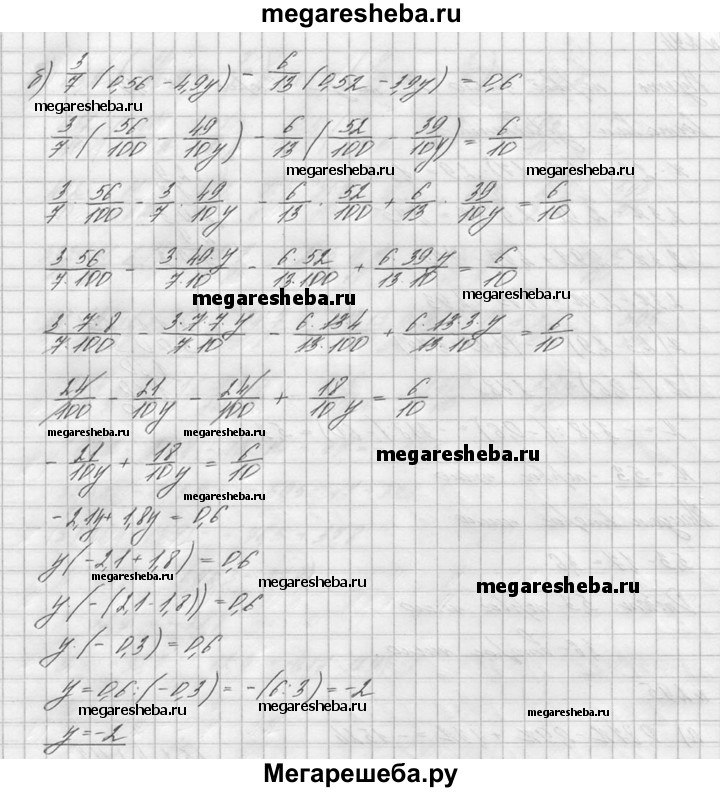 megaresheba.ru
б) 3/7 (0,56 - 4,9y) - 6/13 (0,52 - 3,9y) = 0,6
megaresheba.ru
3/7 (56/100 - 49/10 y) - 6/13 (52/100 - 39/10 y) = 6/10
megaresheba.ru megaresheba.ru
3/7 · 56/100 - 3/7 · 49/10 y - 6/13 · 52/100 + 6/13 · 39/10 y = 6/10
3·56/7·100 - 3·49·y/7·10 - 6·52/13·100 + 6·39·y/13·10 = 6/10
megaresheba.ru megaresheba.ru
3·7·8/7·100 - 3·7·7·y/7·10 - 6·13·4/13·100 + 6·13·3·y/13·10 = 6/10
24/100 - 21/10 y - 24/100 + 18/10 y = 6/10
megaresheba.ru megaresheba.ru
- 21/10 y + 18/10 y = 6/10
megaresheba.ru
megaresheba.ru
-2,1y + 1,8y = 0,6
y(-2,1 + 1,8) = 0,6
megaresheba.ru megaresheba.ru
megaresheba.ru
y(-(2,1-1,8)) = 0,6
y·(-0,3) = 0,6
y = 0,6:(-0,3) = -(6:3) = -2
megaresheba.ru megaresheba.ru megaresheba.ru
y = -2
Мегарешеба.ру